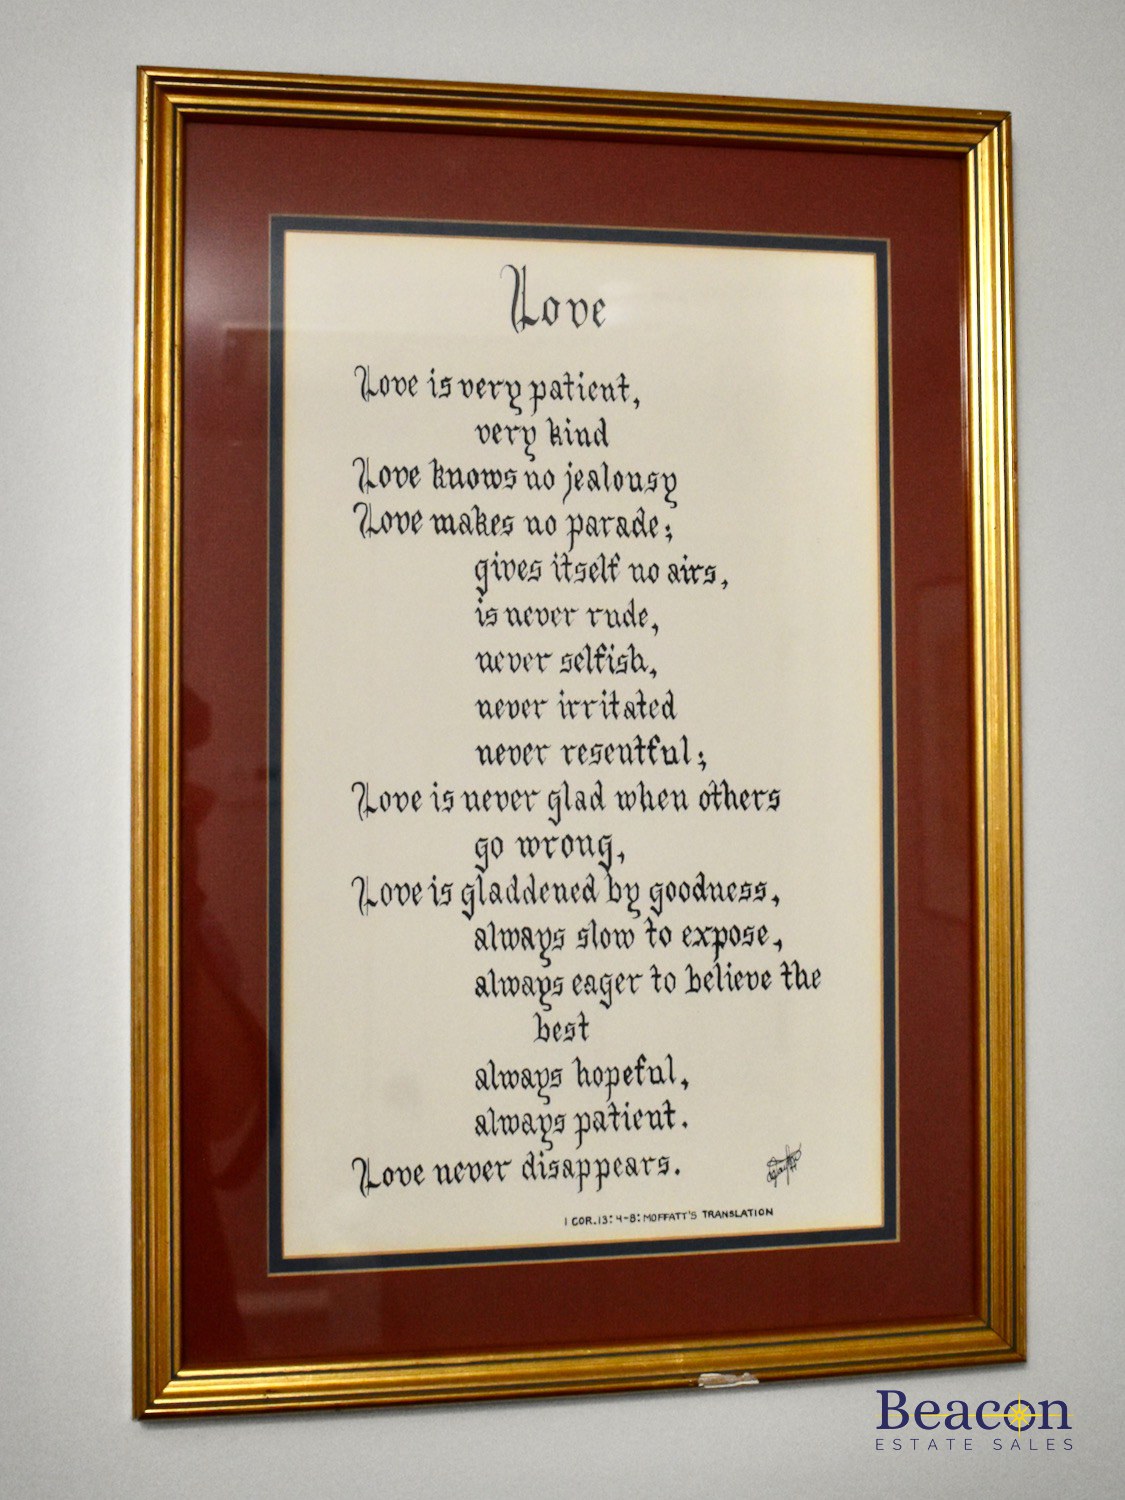 Love
Love is very patient,
very kind
Love knows no jealousy
Love makes no parade;
gives itself no airs,
is never rude,
never selfish,
never irritated
never resentful;
Love is never glad when others
go wrong,
Love is gladdened by goodness,
always slow to expose,
always eager to believe the
best
always hopeful,
always patient.
Love never disappears.
1 COR.13:4-8: MOFFATT'S TRANSLATION
Beacon
ESTATE SALES